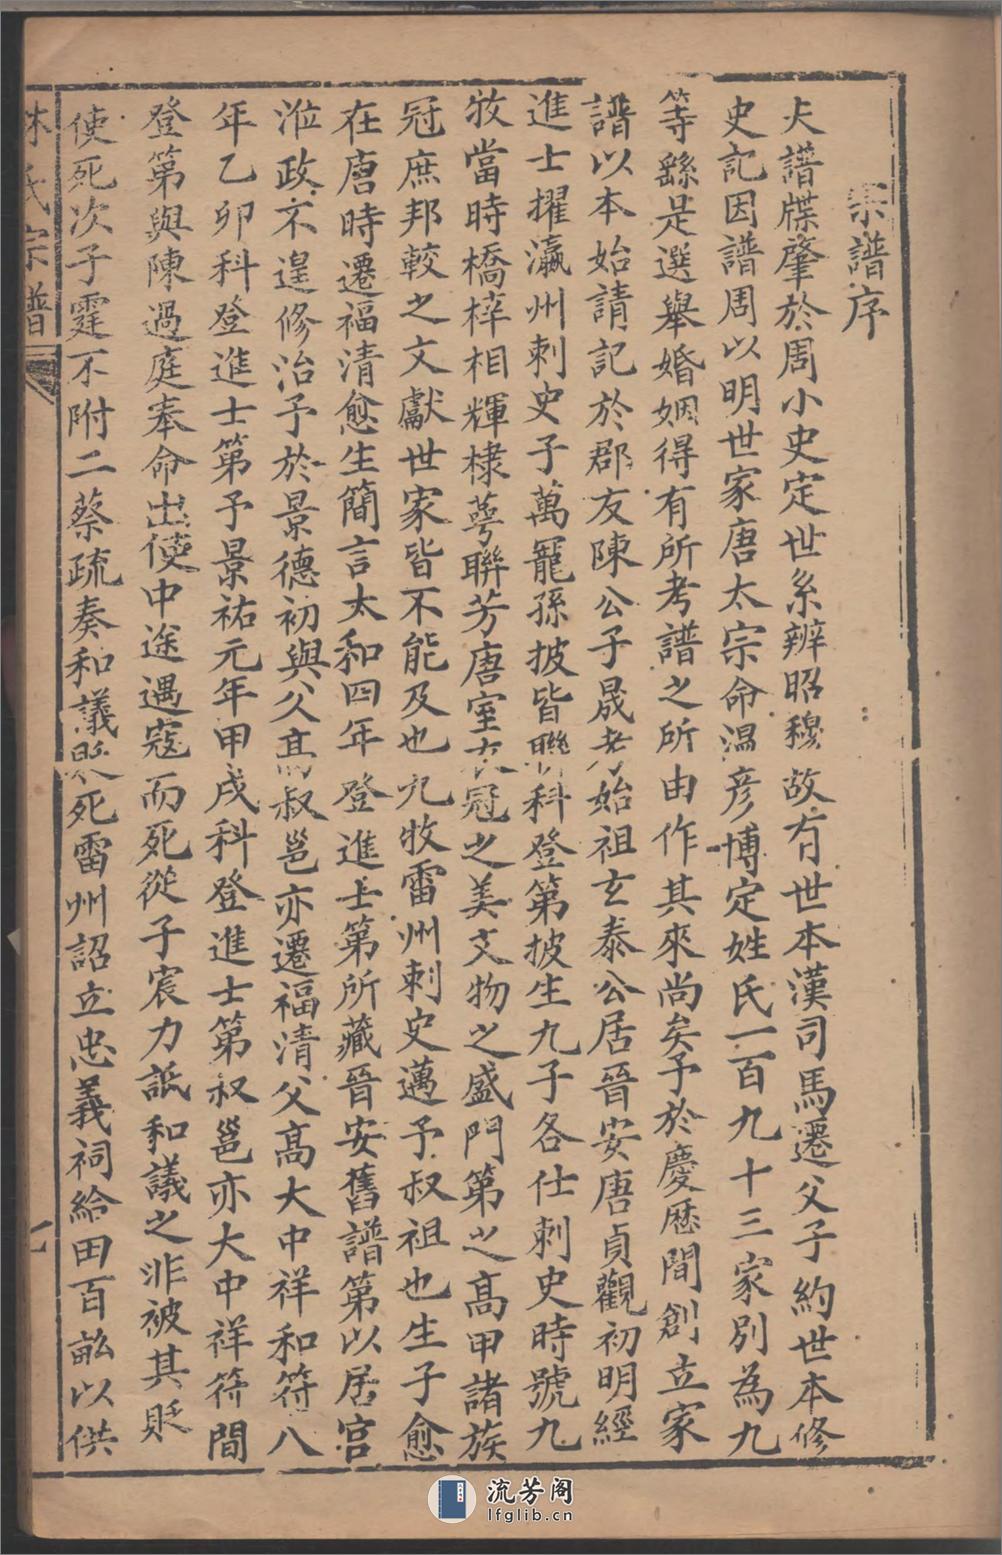 宗譜序
夫譜牒肇於周小史定世系辨昭穆故有世本漢司馬遷父子約世本修
史記因譜周以明世家唐太宗命溫彥博定姓氏一百九十三家別為九
等繇是選舉婚姻得有所考譜之所由作其來尚矣予於慶歷間創立家
譜以本始請記於郡友陳公子晟考始祖玄泰公居晉安唐貞觀初明經
進士擢瀛州刺史子萬寵孫披皆聯科登第披生九子各仕刺史時號九
牧當時橋梓相輝棣萼聯芳唐室衣冠之美文物之盛門第之高甲諸族
冠庶邦較之文獻世家皆不能及也九牧雷州刺史邁予叔祖也生子愈
在唐時遷福清愈生簡言太和四年登進士第所藏晉安舊譜第以居官
涖政不遑修治予於景德初與父高叔邕亦遷福清父高大中祥和符八
年乙卯科登進士第予景祐元年甲戌科登進士第叔邕亦大中祥符間
登第與陳過庭奉命出使中途遇寇而死從子宸力詆和議之非被其貶
使死次子霆不附二蔡疏奏和議 死雷州詔立忠義祠給田百畝以供
林氏宗譜
七
流芳阁
lfglib.cn